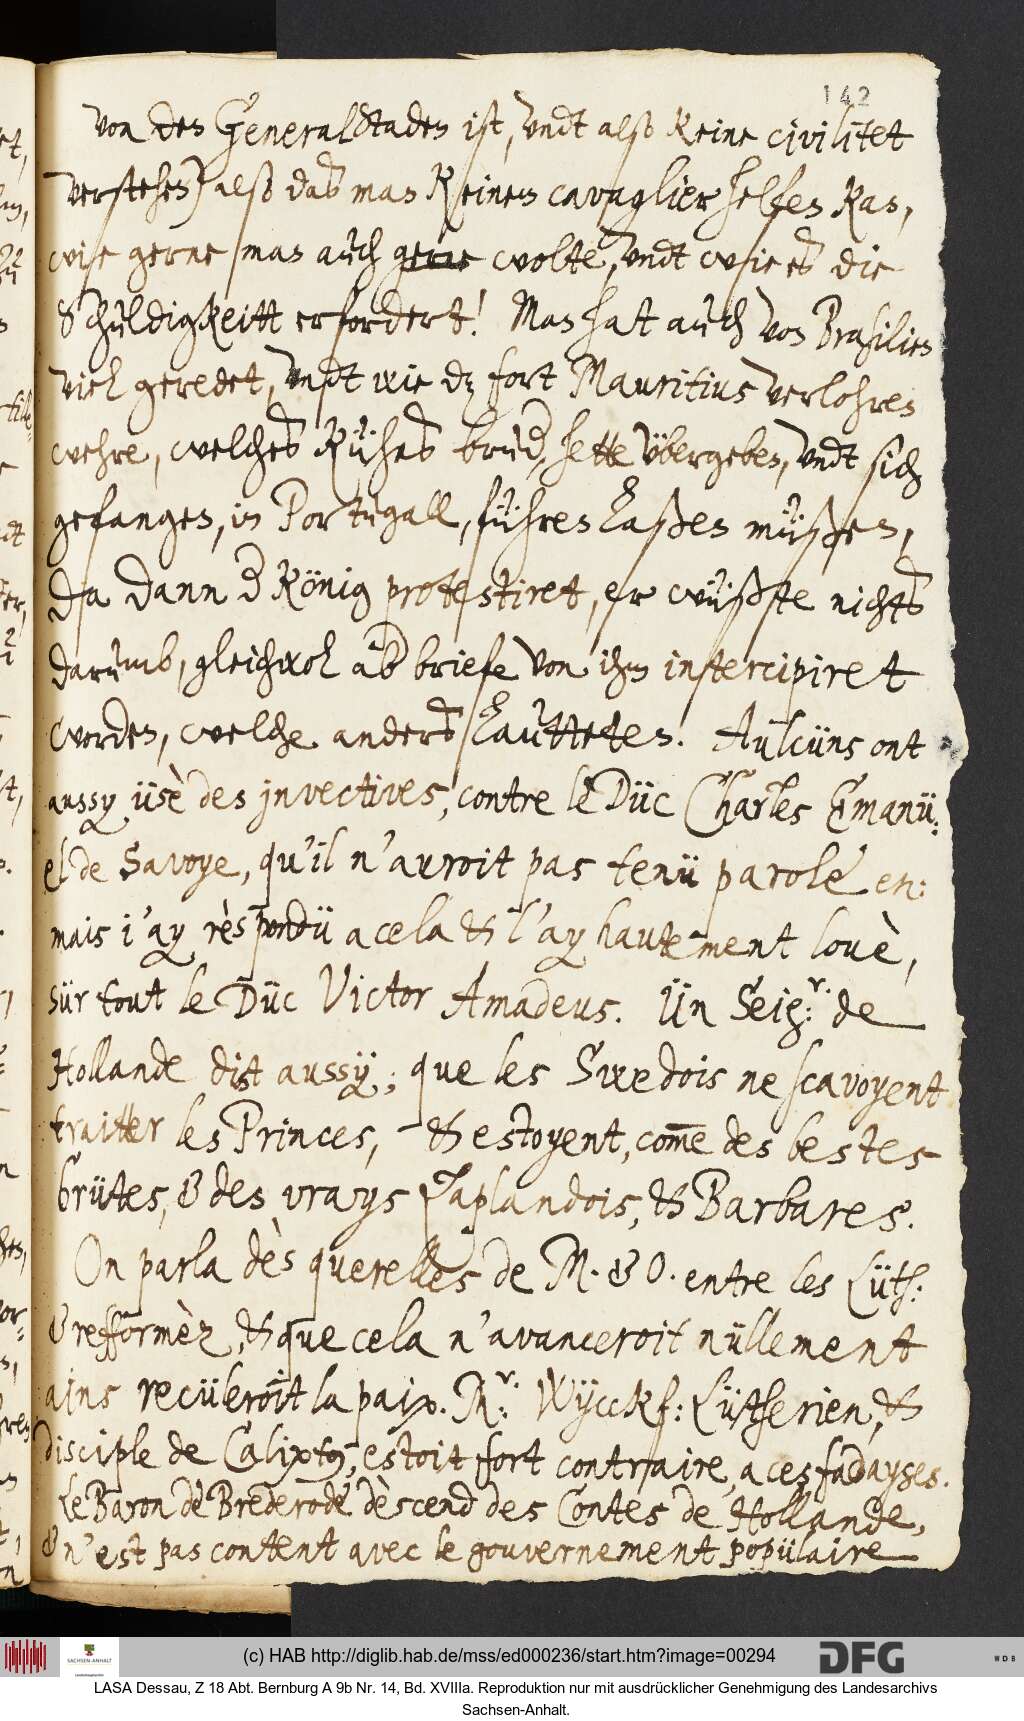 142
von den General Staden ist, undt also keine civilitet
verstehen) also das man keinem cavaglier helfen kan,
wie gerne man auch gerne wolte, undt wie es die
Schuldigkeitt erfordert! Man hat auch von Brasilien
viel geredet, undt wie dz fort Mauritius verlohren
wehre, welches Kühns brud. hette übergeben, undt sich
gefangen, in Portugall, führen laßen müßen,
Da dann d König protestiret, er wüßte nichts
darumb, gleichwol ab briefe von ihm intercipiret
worden, welche anders lautteten. Aulcüns ont
aussy üsè des jnvectives, contre le Düc Charles Emanü:
el de Savoye, qu'il n'auroit pas tenü parole en:
mais j'ay rèspondü a cela & l'ay hautement louè,
sür tout le Düc Victor Amadeus. Ün Seig:r de
Hollande dist aussÿ; que les Swedois ne scavoyent
traitter les Princes, & estoyent, com̅e des bestes
brütes, & des vrays Laplandois, & Barbares.
On parla dès querelles de M. & O. entre les Lüth:
& refformèz, & que cela n'avanceroit nüllement
ains recüleroit la paix. M:r Wÿckf: Lütherien, &
disciple de Calixtg, estoit fort contraire, a ces fadayses.
Le Baron de Brederode dèscend des Contes de Hollande,
& n'est pas content avec le gouvernement popülaire
(c) HAB http://diglib.hab.de/mss/ed000236/start.htm?image=00294
SACHSEN-ANHALT
DFG
WDB
LASA Dessau, Z 18 Abt. Bernburg A 9b Nr. 14, Bd. XVIIIa. Reproduktion nur mit ausdrücklicher Genehmigung des Landesarchivs
Sachsen-Anhalt.